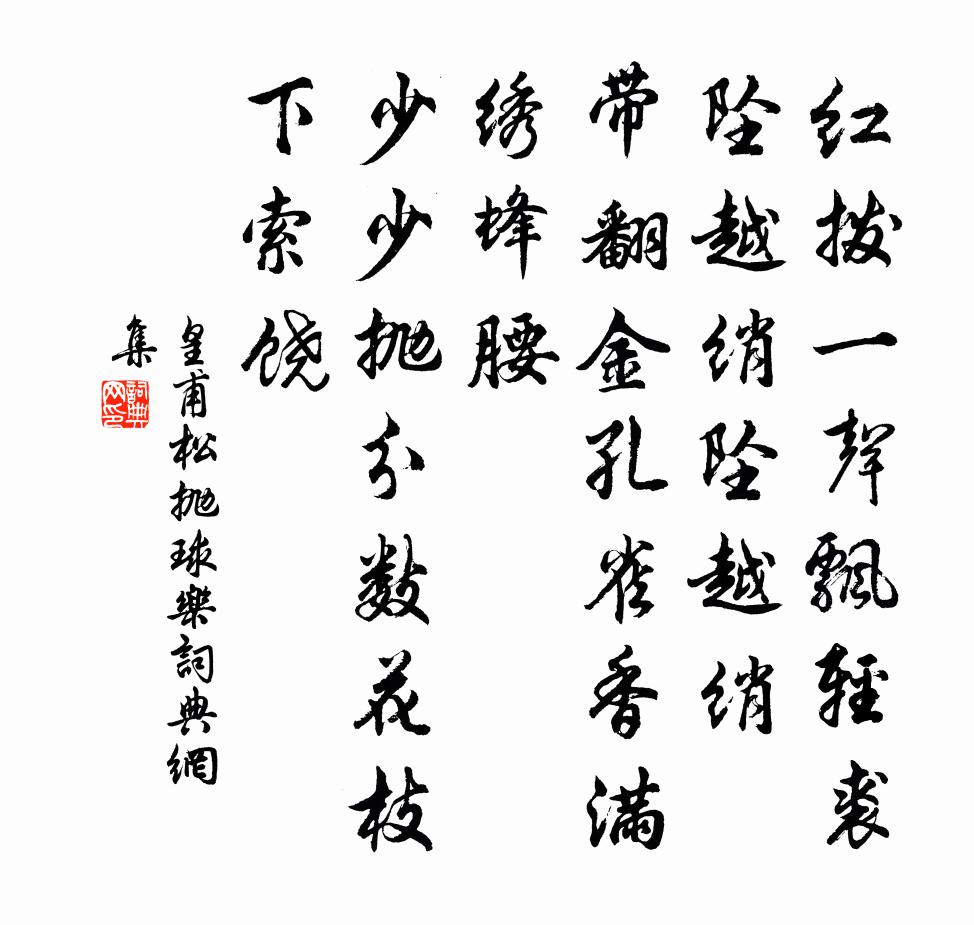 红拨一声飘轻裘
坠越绡坠越绡
带翻金孔雀香满
绣蜂腰
少少抛分数花枝
下索饶
皇甫松抛球樂詞典網
集
詞典网印